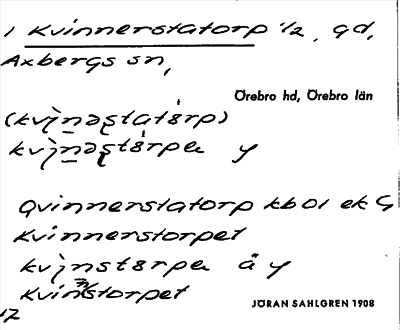 1 Kvinnerstatorp 1/2, gd,
Axbergs sn,
Örebro hd, Örebro län
(kvi̬nəstatɵrp)
kvi̬nəstɵrpa y
Qvinnerstatorp kb 01 ek G
Kvinnerstorpet
kvi̬nstɵrpa å y
Kvinnstorpet
JÖRAN SAHLGREN 1908
12